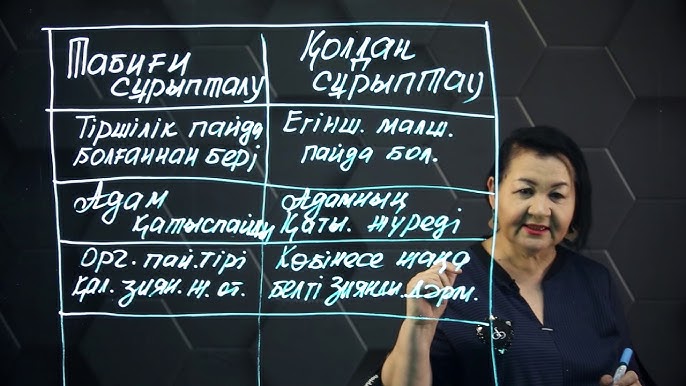 Табиғи
сұрыпталу
Қолдан
сұрыптау
Тіршілік пайда
болғаннан бері
Егінш. малш.
пайда бол.
Адам
қатыспайды
Адамның
қаты. жүреді
Орг. пай. тірі
қал. зиян. ж. от.
Көбінесе жаңа
белгі зиянды